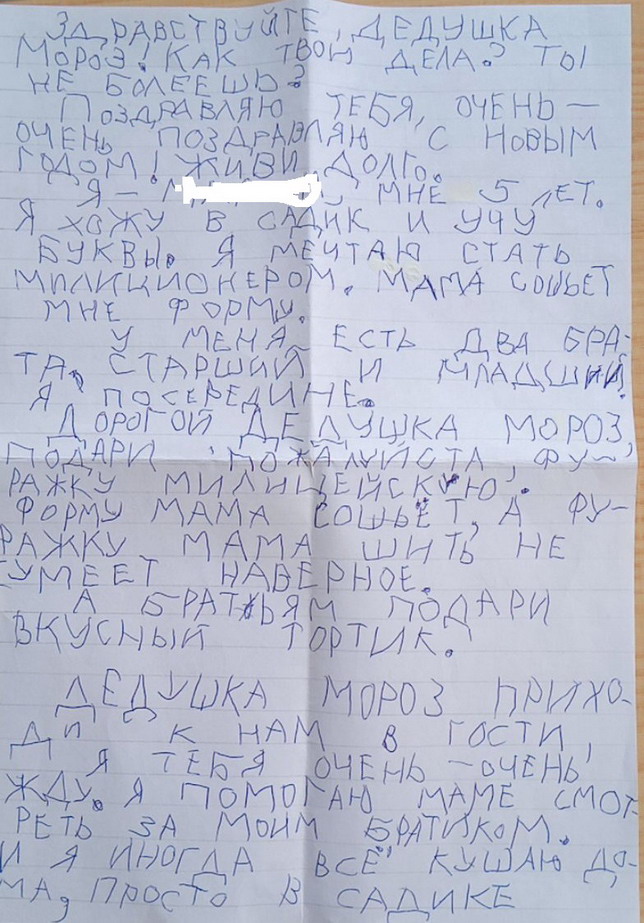 ЗДРАВСТВУЙТЕ, ДЕДУШКА
МОРОЗ! КАК ТВОИ ДЕЛА? ТЫ
НЕ БОЛЕЕШЬ?
ПОЗДРАВЛЯЮ ТЕБЯ, ОЧЕНЬ —
ОЧЕНЬ ПОЗДРАВЛЯЮ С НОВЫМ
ГОДОМ! ЖИВИ ДОЛГО.
Я — МНЕ 5 ЛЕТ.
Я ХОЖУ В САДИК И УЧУ
БУКВЫ. Я МЕЧТАЮ СТАТЬ
МИЛИЦИОНЕРОМ. МАМА СОШЬЕТ
МНЕ ФОРМУ.
У МЕНЯ ЕСТЬ ДВА БРА-
ТА, СТАРШИЙ И МЛАДШИЙ.
Я ПОСЕРЕДИНЕ.
ДОРОГОЙ ДЕДУШКА МОРОЗ,
ПОДАРИ, ПОЖАЛУЙСТА, ФУ-
РАЖКУ МИЛИЦЕЙСКУЮ.
ФОРМУ МАМА СОШЬЁТ, А ФУ-
РАЖКУ МАМА ШИТЬ НЕ
СУМЕЕТ НАВЕРНОЕ.
А БРАТЬЯМ ПОДАРИ
ВКУСНЫЙ ТОРТИК.
ДЕДУШКА МОРОЗ ПРИХО-
ДИ К НАМ В ГОСТИ,
Я ТЕБЯ ОЧЕНЬ-ОЧЕНЬ
ЖДУ. Я ПОМОГАЮ МАМЕ СМОТ-
РЕТЬ ЗА МОИМ БРАТИКОМ.
И Я ИНОГДА ВСЁ КУШАЮ ДО-
МА, ПРОСТО В САДИКЕ